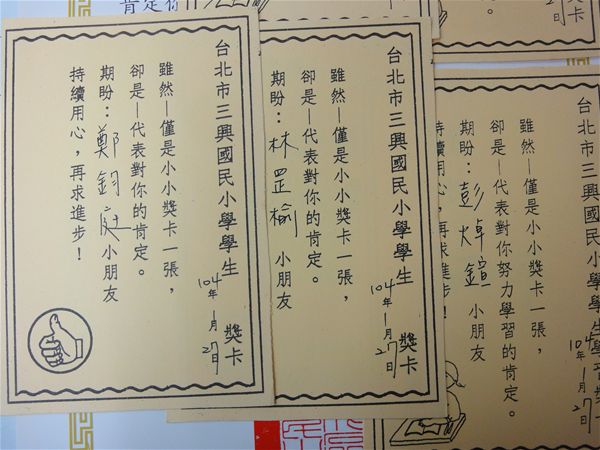 台北市三興國民小學學生獎卡
雖然—僅是小小獎卡一張，
卻是—代表對你的肯定。
期盼：鄭鈞庭小朋友
持續用心，再求進步！
104年1月27日
台北市三興國民小學學生獎卡
雖然—僅是小小獎卡一張，
卻是—代表對你的肯定。
期盼：林罡榆小朋友
104年1月27日
台北市三興國民小學學生學習獎
雖然—僅是小小獎卡一張，
卻是—代表對你努力學習的肯定。
期盼：彭焯鍹小朋友
持續用心，再求進步！
104年1月27
肯定你